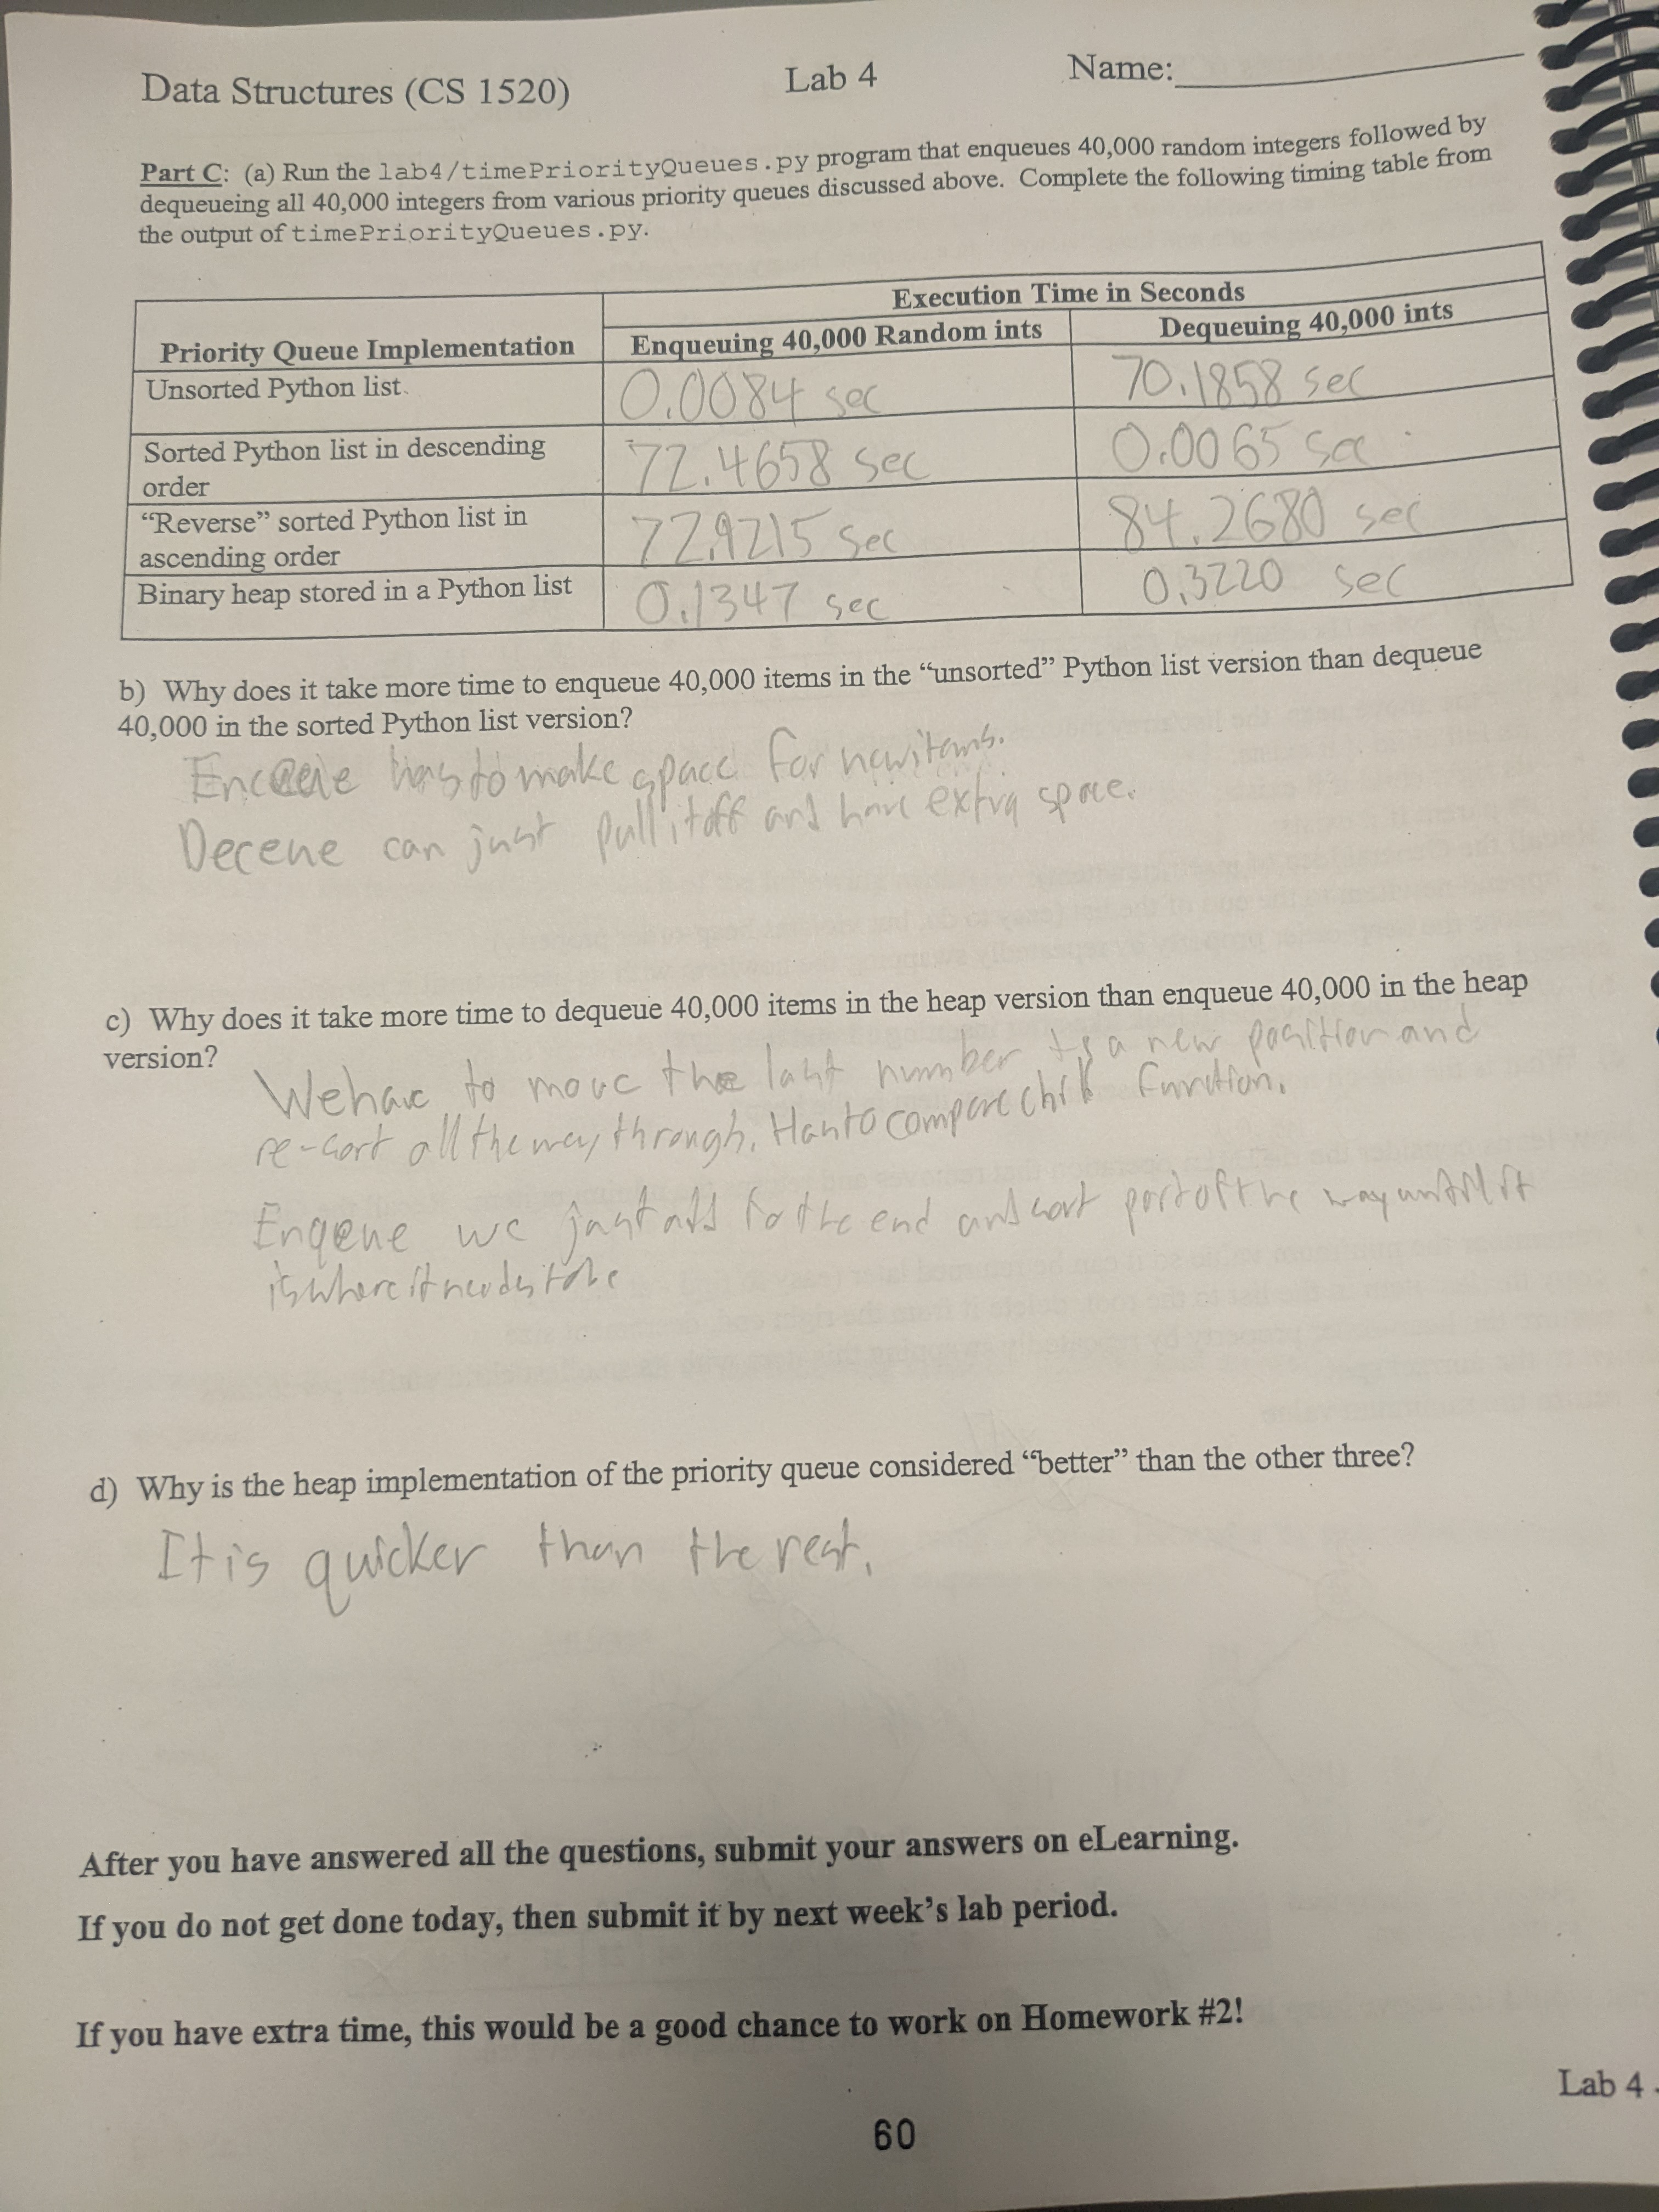 Data Structures (CS 1520) Lab 4 Name:
Part C: (a) Run the lab4/timePriorityQueues.py program that enqueues 40,000 random integers followed by
dequeueing all 40,000 integers from various priority queues discussed above. Complete the following timing table from
the output of timePriorityQueues.py.
Execution Time in Seconds
Priority Queue Implementation Enqueuing 40,000 Random ints Dequeuing 40,000 ints
Unsorted Python list 0.0084 sec 70.1858 sec
Sorted Python list in descending 72.4658 sec 0.0065 sec
order
“Reverse” sorted Python list in 72.9215 sec 84.2680 sec
ascending order
Binary heap stored in a Python list 0.1347 sec 0.3220 sec
b) Why does it take more time to enqueue 40,000 items in the “unsorted” Python list version than dequeue
40,000 in the sorted Python list version?
has to make space for new items.
can just pull it off and have extra space.
c) Why does it take more time to dequeue 40,000 items in the heap version than enqueue 40,000 in the heap
version?
We have to move the last number to a new position and
re-sort all the way through. Has to compare function.
Enqeue we just add to the end and sort part of the way until it
is where it needs to be
d) Why is the heap implementation of the priority queue considered “better” than the other three?
It is quicker than the rest.
After you have answered all the questions, submit your answers on eLearning.
If you do not get done today, then submit it by next week’s lab period.
If you have extra time, this would be a good chance to work on Homework #2!
Lab 4
60